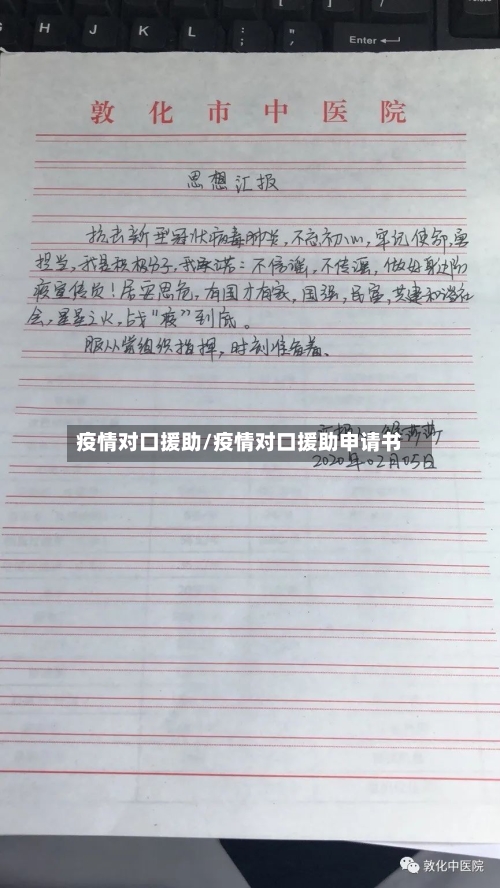 H J K L : ; " ' Enter
敦化市中医院
思想汇报
抗击新型冠状病毒肺炎,不忘初心,牢记使命,勇
担当,我是积极分子,我承诺:不信谣,不传谣,做好身边防
疫宣传员!居安思危,有国才有家,国强,民富,共建和谐社
会,星星之火,战“疫”到底。
服从党组织指挥,时刻准备着。
疫情对口援助/疫情对口援助申请书
2020年02月05日
敦化中医院